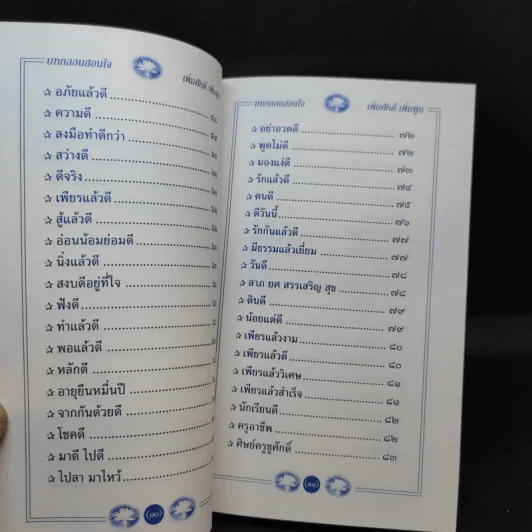 บทกลอนสอนใจ
เพิ่มศักดิ์ เพิ่มพูน
✰ อภัยแล้วดี
✰ ความดี
✰ ลงมือทำดีกว่า
✰ สว่างดี
✰ ดีจริง
✰ เพียรแล้วดี
✰ สู้แล้วดี
✰ อ่อนน้อมย่อมดี
✰ นิ่งแล้วดี
✰ สงบดีอยู่ที่ใจ
✰ ฟังดี
✰ ทำแล้วดี
✰ พอแล้วดี
✰ หลักดี
✰ อายุยืนหมื่นปี
✰ จากกันด้วยดี
✰ โชคดี
✰ มาดี ไปดี
✰ ไปลา มาไหว้
(๑๐)
บทกลอนสอนใจ
เพิ่มศักดิ์ เพิ่มพูน
✰ อย่าอวดดี ๗๒
✰ พูดไม่ดี ๗๒
✰ มองแง่ดี ๗๓
✰ รักแล้วดี ๗๔
✰ คนดี ๗๕
✰ ดีวันนี้ ๗๖
✰ รักกันแล้วดี ๗๗
✰ มีธรรมแล้วเยี่ยม ๗๗
✰ วันดี ๗๘
✰ ลาภ ยศ สรรเสริญ สุข ๗๘
✰ ดินดี ๗๙
✰ น้อยแต่ดี ๗๙
✰ เพียรแล้วงาม ๘๐
✰ เพียรแล้วดี ๘๐
✰ เพียรแล้ววิเศษ ๘๑
✰ เพียรแล้วสำเร็จ ๘๑
✰ นักเรียนดี ๘๒
✰ ครูอาชีพ ๘๒
✰ ศิษย์ครูชูศักดิ์ ๘๓
(๑๑)